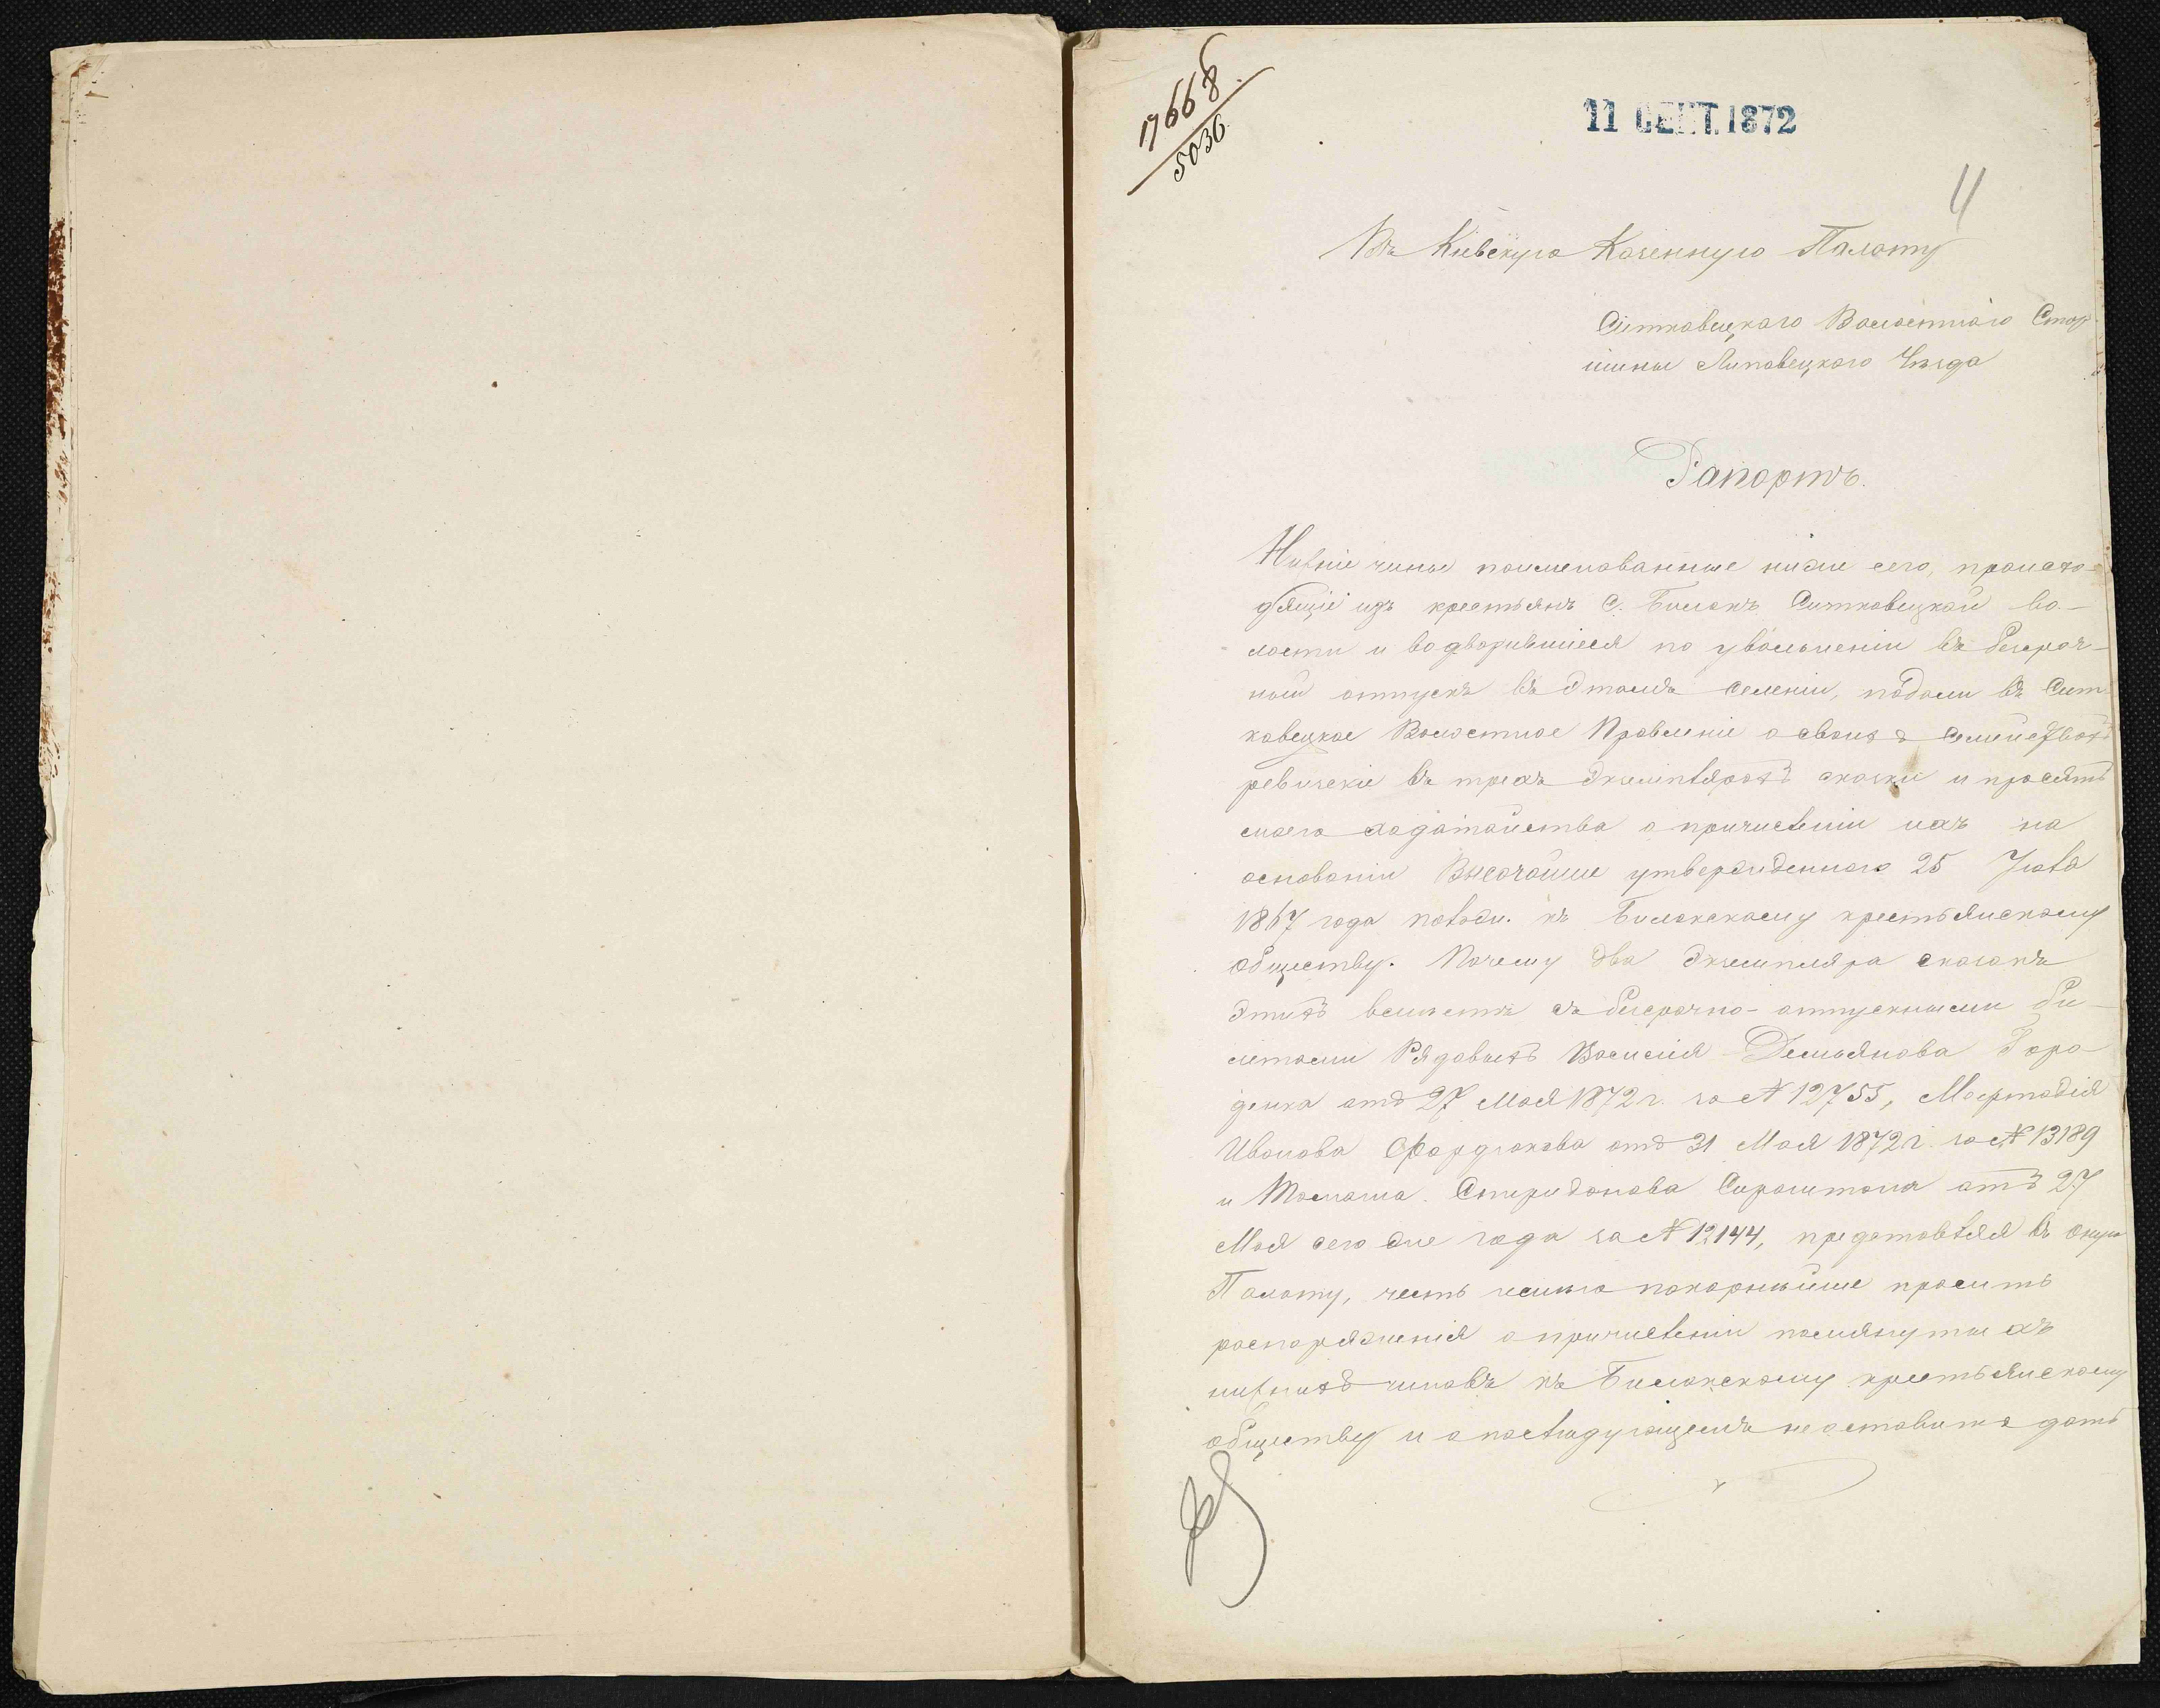 17668
5036
11 СЕНТ. 1872
4
Въ Кіевскую Казенную Палату
Ситковецкаго Волостнаго Стар-
шины Липовецкаго Уѣзда
Рапортъ.
Нижніе чины поименованные ниже сего, происхо-
дящіе изъ крестьянъ С. Билокъ Ситковецкой во-
лости и водворившіеся по увольненіи въ безсроч-
ный отпускъ въ этомъ селеніи, подали въ Сит-
ковецкое Волостное Правленіе о своихъ семействахъ
ревизскіе въ трехъ экземплярахъ сказки и просятъ
моего ходатайства о причисленіи ихъ на
основаніи Высочайше утвержденнаго 25 Іюля
1867 года полож. къ Билокскому крестьянскому
обществу. Почему два экземпляра сказокъ
этихъ вмѣстѣ съ безсрочно-отпускными би-
летами Рядовыхъ Василія Демьянова
отъ 27 Мая 1872 г. за № 12755,
Иванова отъ 31 Мая 1872 г. за № 13189
и Томаша Спиридонова отъ 27
Мая сего же года за № 12144, представляя въ оную
Палату, честь имѣю покорнѣйше просить
распоряженія о причисленіи помянутыхъ
нижнихъ чиновъ къ Билокскому крестьянскому
обществу и о послѣдующемъ не оставить дать